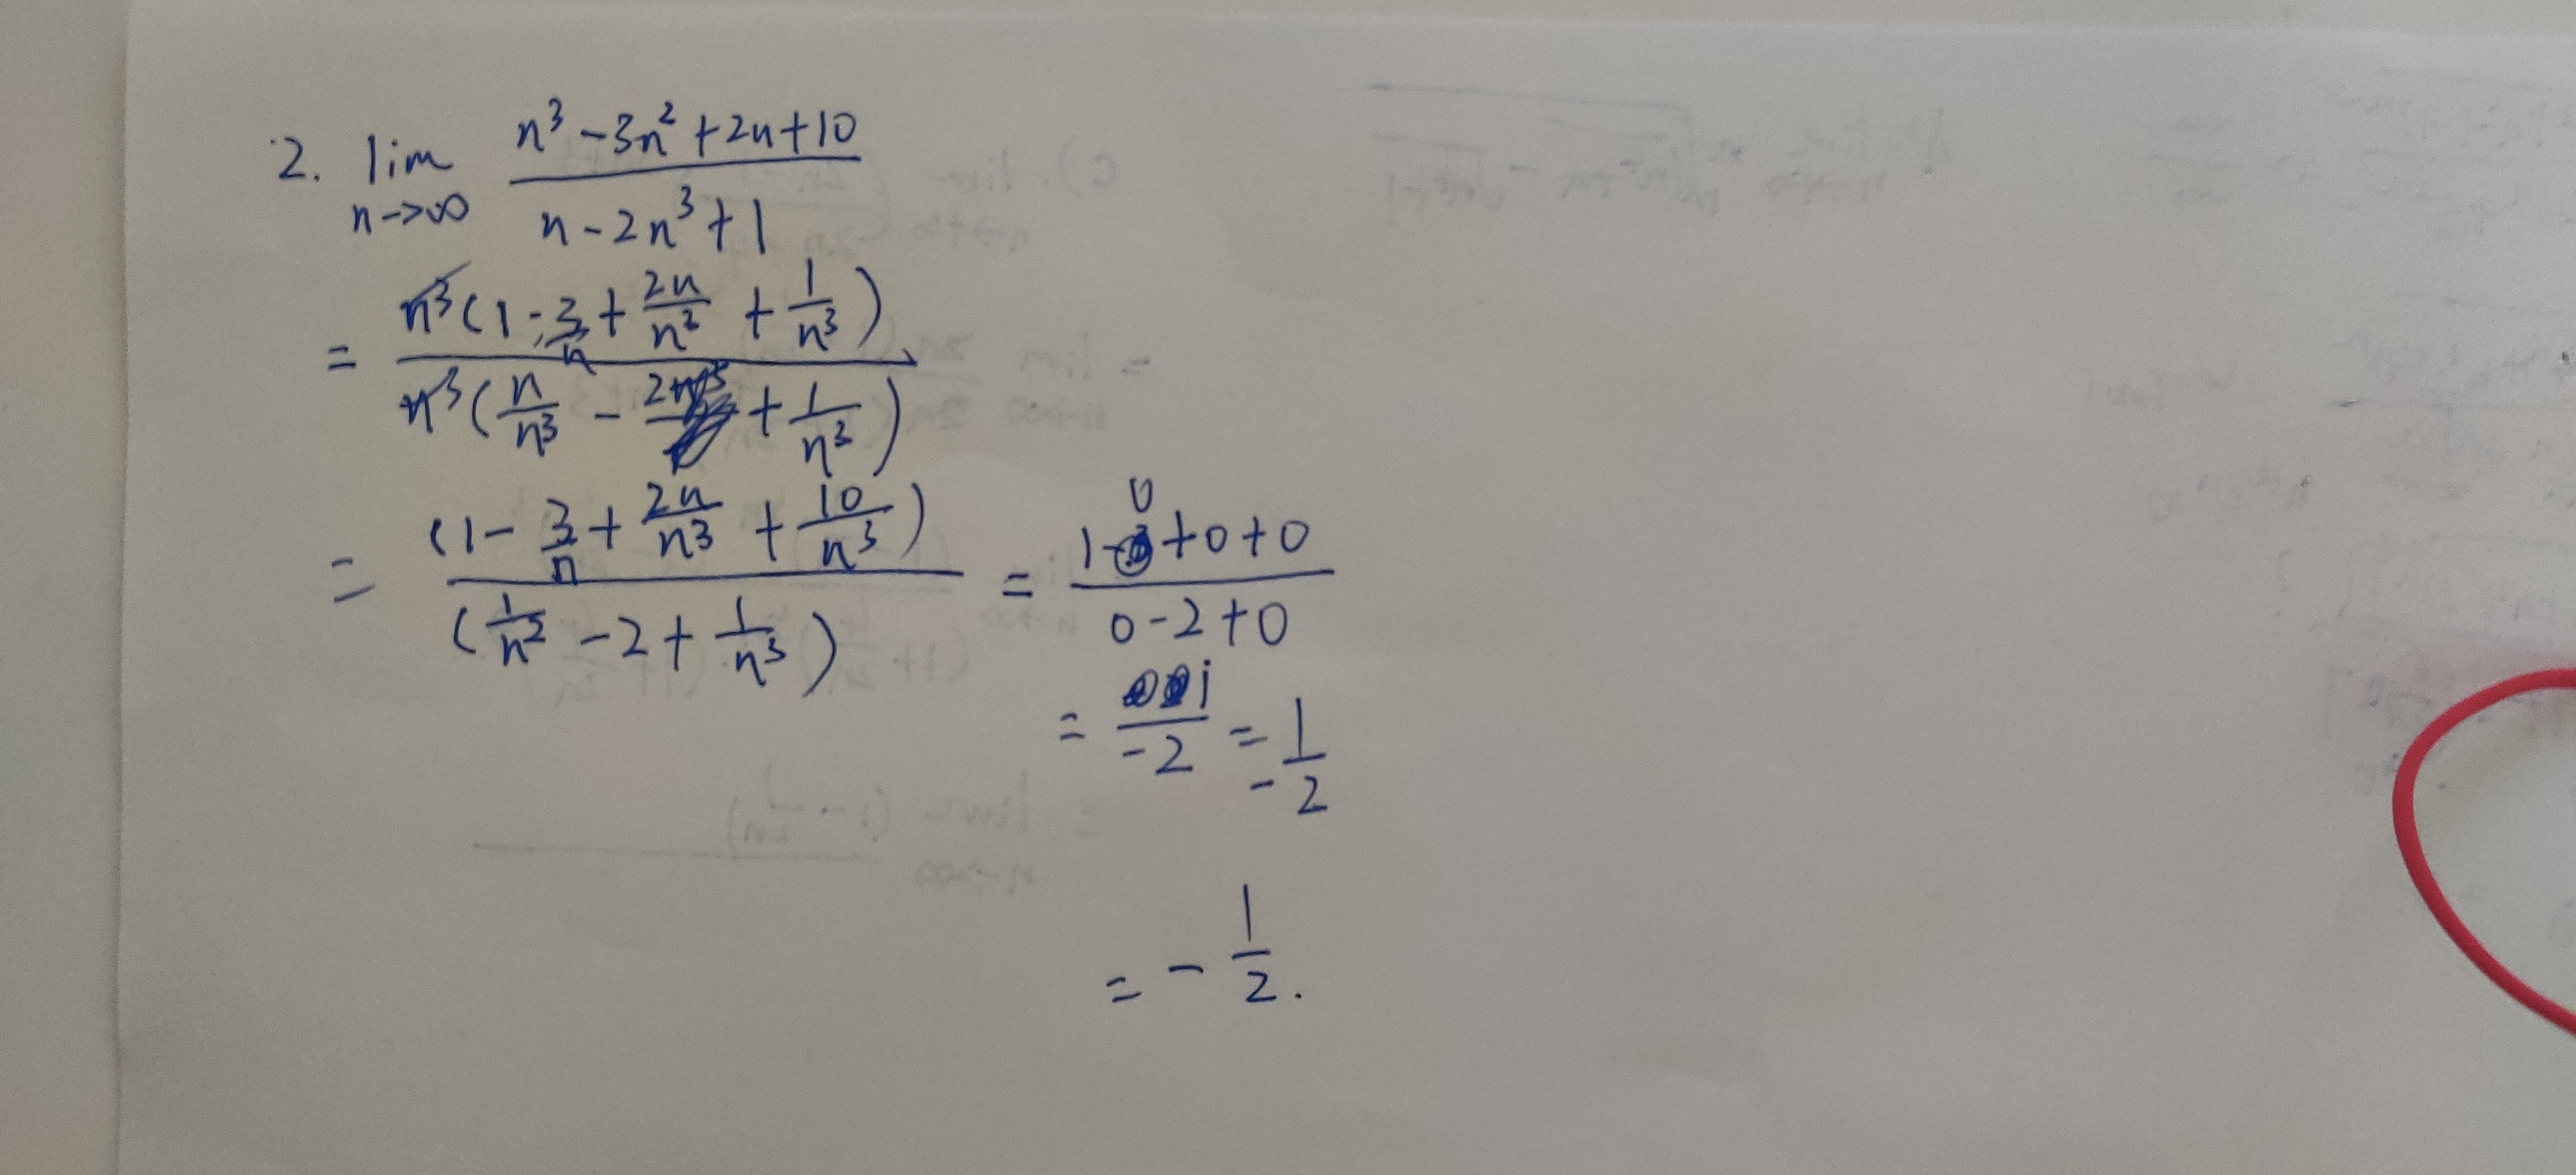 2. lim n→∞ (n³ - 3n² + 2n + 10) / (n - 2n³ + 1)
= n³(1 - 3/n + 2n/n² + 1/n³) / n³(n/n³ - 2 + 1/n³)
= (1 - 3/n + 2n/n³ + 10/n³) / (1/n² - 2 + 1/n³) = (1 - 0 + 0 + 0) / (0 - 2 + 0)
= 1 / -2 = 1 / -2
= - 1/2.